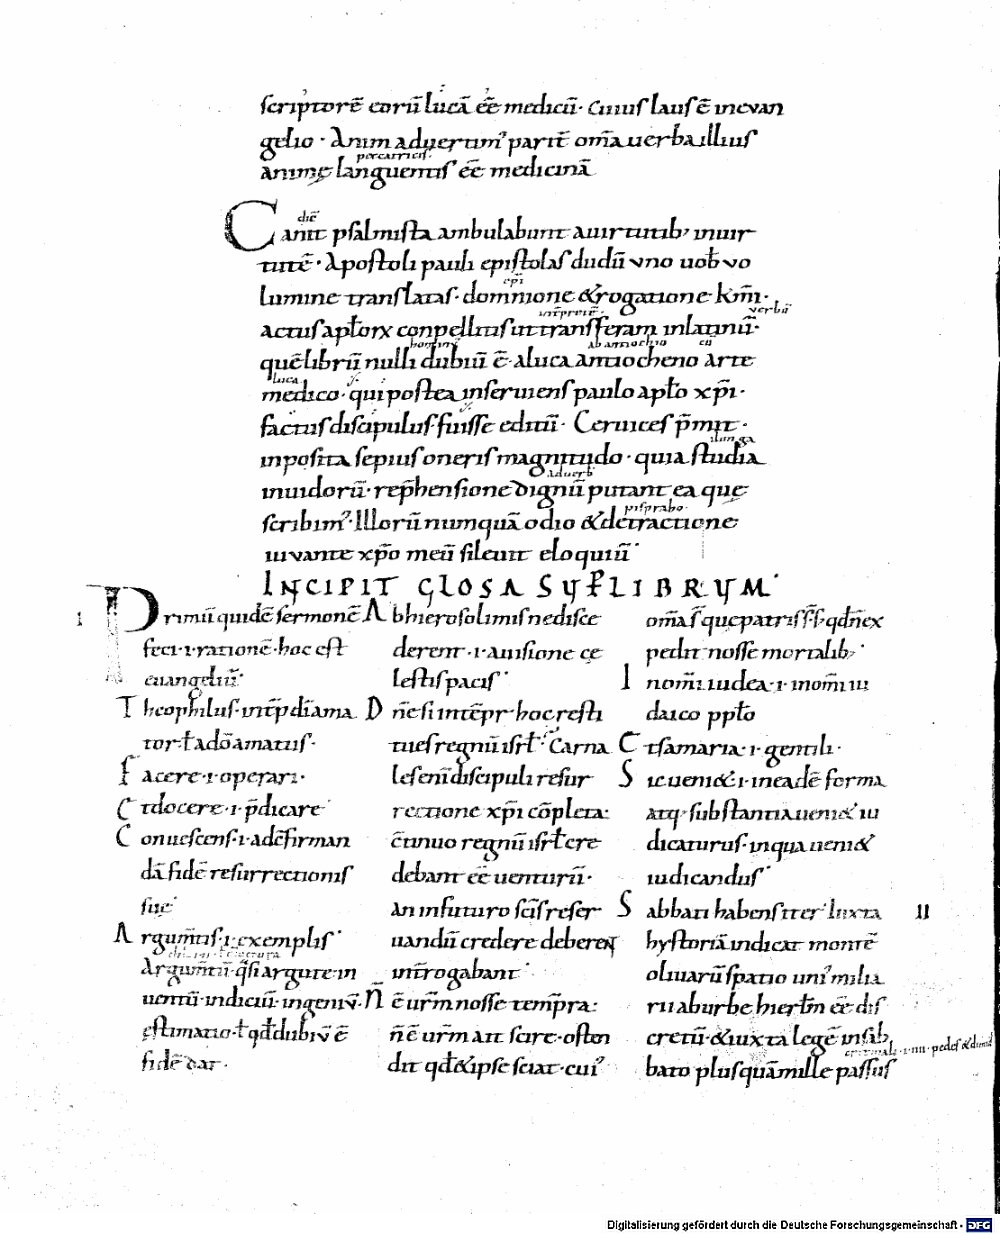 scriptorē eorū lucā eē medicū· cuius laus ē in evan
gelio · Anim aduertim' parit̄ om̄a uerba illius
percarricis·
animę languentis eē medicinā
diē
Canit psalmista ambulabunt a uirtutib; in uir
tutē · Apostoli pauli epistolas dudū vno uob vo
lumine translatas· domnione & rogatione km̄·
actus aptorx conpellitis ut transferam in latinū·
verbū
quē librū nulli dubiū ē· a luca antiocheno arte
homini
ab antiochio
cū
luca
medico· qui postea inseruiens paulo apto xp̄i·
factus discipulus· fuisse editū· Ceruices p̄mit·
inposita sepius oneris magnitudo · quia studia
aduerb
inuidorū· rep̄hensione dignū putant ea quę
scribim'· Illorū numquā odio & detractione
iuvante xp̄o meū silebit eloquiū·
INCIPIT GLOSA SUP̄ LIBRUM·
I
Primū quidē sermonē
feci· i· rationē· hoc est
euangeliū·
Theophilus· int̄p̄ dī ama
tor· ł a dō amatus·
Facere· i· operari·
Et docere· i· p̄dicare
Conuescens· i· ad ēfirman
dā fidē resurrectionis
suę
Argum̄tis· i· exemplis·
Argum̄tū· q̄si argute in
uentū· indiciū· ingeniū·
ęstimatio· ł qđ dubiū ē
fidē dat·
Ab hierosolimis ne disce
derent· i· a uisione ce
lestis pacis·
Dn̄e si in temp̄r hoc resti
tues regnū isrł· Carna
les eni discipuli resur
rectione xp̄i cōpleta·
c̄tinuo regnū isrł cre
debant eē uenturū·
an in futuro scīs reser
uandū credere deberent
int̄rogabant·
N̄ ē urm̄ nosse temp̄ra·
n̄ ē urm̄ ait scire· osten
dit qđ & ipse sciat· cui'
om̄a s̄ que patris s̄· s; qđ n̄ ex
pedit nosse mortalib;·
In om̄i iudea· i· in om̄i iu
daico pp̄lo
Et samaria· i· gentili·
Sic ueni&· i· in eadē forma
atq; substantia ueni& iu
dicaturus· in qua ueni&
iudicandus·
Sabbati habens iter· Iuxta
II
hystoriā indicat montē
oliuarū spatio uni' milia
rii ab urbe hierłm eē dis
cretū· & iuxta legē in sab
bato plus quā mille passus
Digitalisierung gefördert durch die Deutsche Forschungsgemeinschaft · DFG